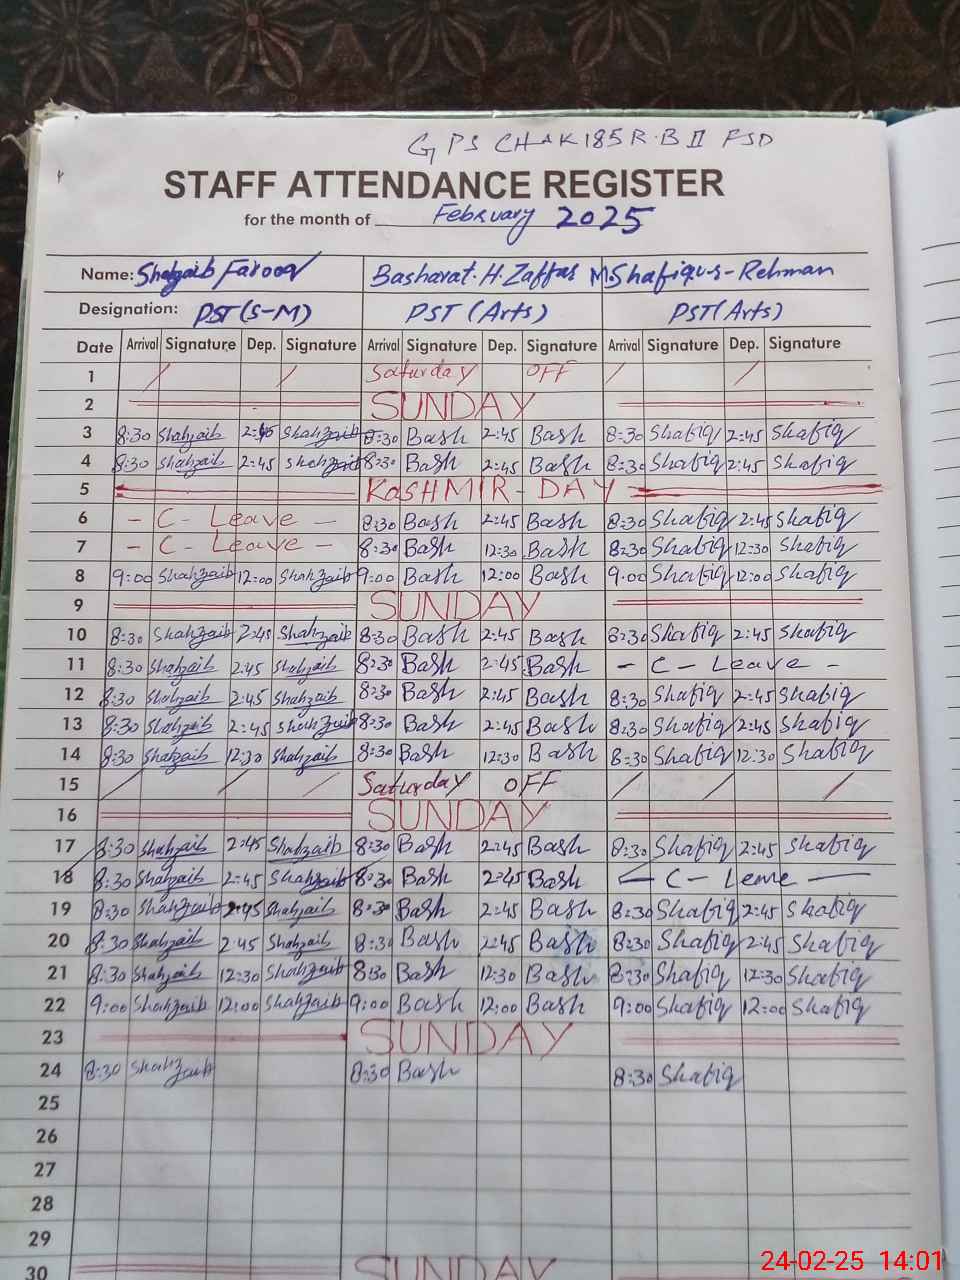 GPS CHAK 185 R.B II FSD
STAFF ATTENDANCE REGISTER
for the month of February 2025
Name: Shahzaib Farooq Basharat.H.Zaffar M.Shafiq-u-s-Rehman
Designation: PST (S-M) PST (Arts) PST (Arts)
Date Arrival Signature Dep. Signature Arrival Signature Dep. Signature Arrival Signature Dep. Signature
1 Saturday OFF
2 SUNDAY
3 8:30 Shahzaib 2:45 Shahzaib 8:30 Bash 2:45 Bash 8:30 Shafiq 2:45 Shafiq
4 8:30 Shahzaib 2:45 Shahzaib 8:30 Bash 2:45 Bash 8:30 Shafiq 2:45 Shafiq
5 KASHMIR - DAY
6 - C - Leave - 8:30 Bash 2:45 Bash 8:30 Shafiq 2:45 Shafiq
7 - C - Leave - 8:30 Bash 12:30 Bash 8:30 Shafiq 12:30 Shafiq
8 9:00 Shahzaib 12:00 Shahzaib 9:00 Bash 12:00 Bash 9:00 Shafiq 12:00 Shafiq
9 SUNDAY
10 8:30 Shahzaib 2:45 Shahzaib 8:30 Bash 2:45 Bash 8:30 Shafiq 2:45 Shafiq
11 8:30 Shahzaib 2:45 Shahzaib 8:30 Bash 2:45 Bash - C - Leave -
12 8:30 Shahzaib 2:45 Shahzaib 8:30 Bash 2:45 Bash 8:30 Shafiq 2:45 Shafiq
13 8:30 Shahzaib 2:45 Shahzaib 8:30 Bash 2:45 Bash 8:30 Shafiq 2:45 Shafiq
14 8:30 Shahzaib 12:30 Shahzaib 8:30 Bash 12:30 Bash 8:30 Shafiq 12:30 Shafiq
15 Saturday OFF
16 SUNDAY
17 8:30 Shahzaib 2:45 Shahzaib 8:30 Bash 2:45 Bash 8:30 Shafiq 2:45 Shafiq
18 8:30 Shahzaib 2:45 Shahzaib 8:30 Bash 2:45 Bash - C - Leave -
19 8:30 Shahzaib 2:45 Shahzaib 8:30 Bash 2:45 Bash 8:30 Shafiq 2:45 Shafiq
20 8:30 Shahzaib 2:45 Shahzaib 8:30 Bash 2:45 Bash 8:30 Shafiq 2:45 Shafiq
21 8:30 Shahzaib 12:30 Shahzaib 8:30 Bash 12:30 Bash 8:30 Shafiq 12:30 Shafiq
22 9:00 Shahzaib 12:00 Shahzaib 9:00 Bash 12:00 Bash 9:00 Shafiq 12:00 Shafiq
23 SUNDAY
24 8:30 Shahzaib 8:30 Bash 8:30 Shafiq
25
26
27
28
29
30 SUNDAY
24-02-25 14:01